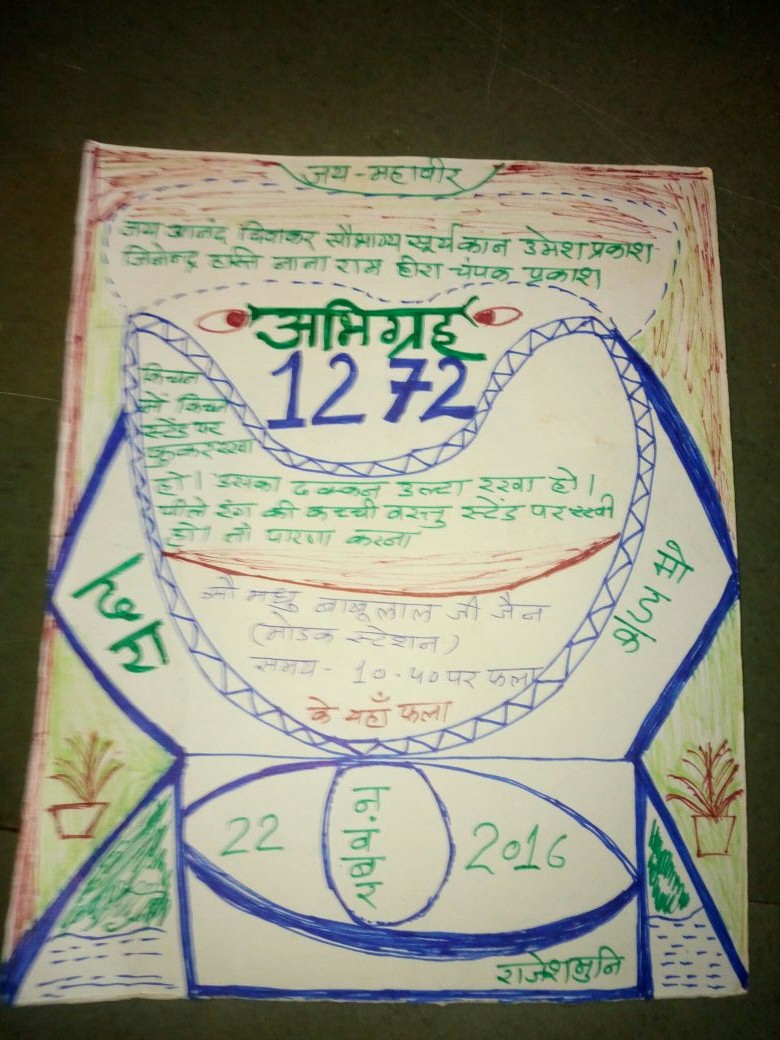 जय-महावीर
जय आनंद दिवाकर सौभाग्य सूर्य कान उमेश प्रकाश
जिनेन्द्र हस्ति नाना राम हीरा चंपक प्रकाश
अभिग्रह
1272
किचन
में किचन
स्टेंड पर
कुकर रखा
हो। उसका ढक्कन उल्टा रखा हो।
पीले रंग की कच्ची वस्तु स्टेंड पर रखी
हो। तो पारणा करना
सौ मधु बाबूलाल जी जैन
(मोडक स्टेशन)
समय - 10-40 पर फला
के यहाँ फला
22
नवंबर
2016
राजेशमुनि